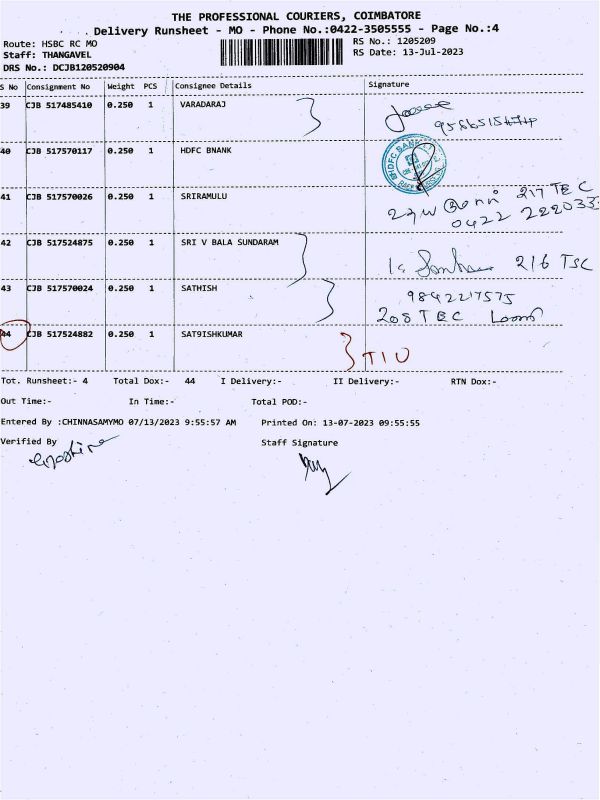 THE PROFESSIONAL COURIERS, COIMBATORE
Delivery Runsheet - MO - Phone No.:0422-3505555 - Page No.:4
Route: HSBC RC MO
Staff: THANGAVEL
DRS No.: DCJB120520904
RS No.: 1205209
RS Date: 13-Jul-2023
S No Consignment No Weight PCS Consignee Details Signature
39 CJB 517485410 0.250 1 VARADARAJ
40 CJB 517570117 0.250 1 HDFC BNANK
HDFC BANK
41 CJB 517570026 0.250 1 SRIRAMULU 217 TEC
0422
42 CJB 517524875 0.250 1 SRI V BALA SUNDARAM 216 TSC
43 CJB 517570024 0.250 1 SATHISH 9842217575
208 TEC
44 CJB 517524882 0.250 1 SAT9ISHKUMAR
Tot. Runsheet:- 4 Total Dox:- 44 I Delivery:- II Delivery:- RTN Dox:-
Out Time:- In Time:- Total POD:-
Entered By :CHINNASAMYMO 07/13/2023 9:55:57 AM Printed On: 13-07-2023 09:55:55
Verified By Staff Signature